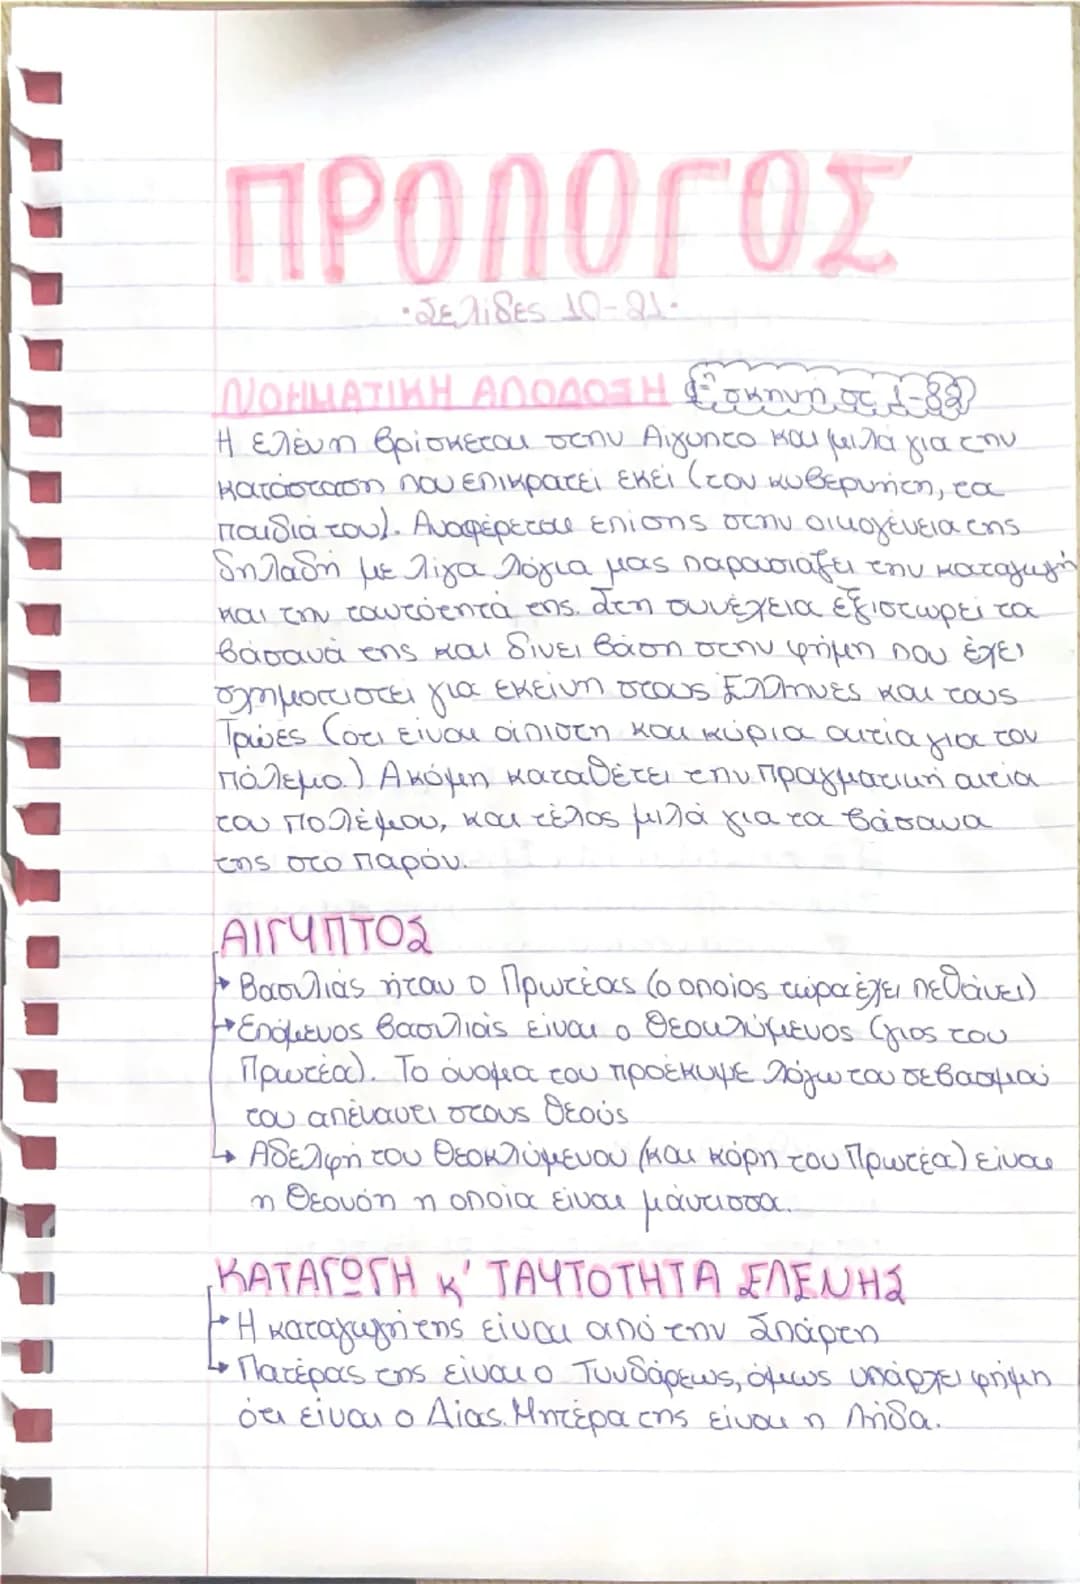 ΠΡΟΛΟΓΟΣ
·Σελίδες 10-21·
ΝΟΗΜΑΤΙΚΗ ΑΠΟΔΟΣΗ 1η σκηνή στ 1-82
Η Ελένη βρίσκεται στην Αίγυπτο και μιλά για την
κατάσταση που επικρατεί εκεί (τον κυβερνήτη, τα
παιδιά του). Αναφέρεται επίσης στην οικογένεια της
δηλαδή με λίγα λόγια μας παρουσιάζει την καταγωγή
και την ταυτότητά της. Στη συνέχεια εξιστωρεί τα
βάσανά της και δίνει βάση στην φήμη που έχει
σχηματιστεί για εκείνη στους Έλληνες και τους
Τρώες (ότι είναι άπιστη και κύρια αιτία για τον
πόλεμο.) Ακόμη καταθέτει την πραγματική αιτία
του πολέμου, και τέλος μιλά για τα βάσανα
της στο παρόν.
ΑΙΓΥΠΤΟΣ
→ Βασιλιάς ήταν ο Πρωτέας (ο οποίος τώρα έχει πεθάνει)
→ Επόμενος βασιλιάς είναι ο Θεοκλύμενος (γιος του
Πρωτέα). Το όνομα του προέκυψε λόγω του σεβασμού
του απέναντι στους θεούς
→ Αδελφή του Θεοκλύμενου (και κόρη του Πρωτέα) είναι
η Θεονόη η οποία είναι μάντισσα.
ΚΑΤΑΓΩΓΗ κ' ΤΑΥΤΟΤΗΤΑ ΕΛΕΝΗΣ
→ Η καταγωγή της είναι από την Σπάρτη
→ Πατέρας της είναι ο Τυνδάρεως, όμως υπάρχει φήμη
ότι είναι ο Δίας. Μητέρα της είναι η Λήδα.